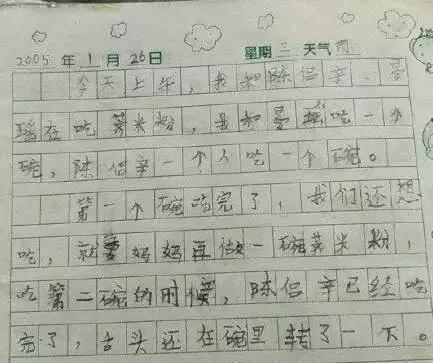 2005 年 1 月 26 日 星期三 天气
今天上午，我和陈侣辛、晏
瑶在吃荠米粉，我和晏瑶吃一个
碗，陈侣辛一个人吃一个碗。
第一个碗吃完了，我们还想
吃，就要妈妈再做一碗荠米粉，
吃第二碗的时候，陈侣辛已经吃
完了，舌头还在碗里转了一下。